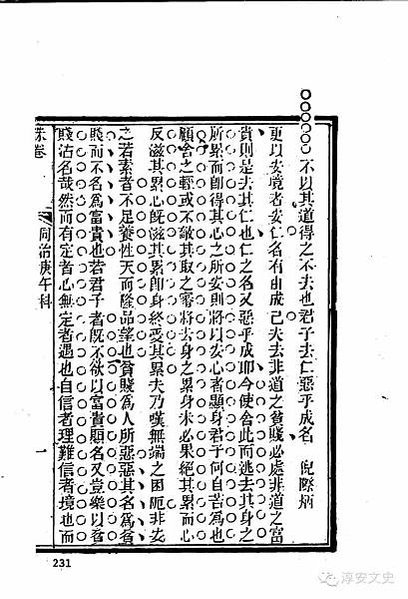 不以其道得之不去也君子去仁惡乎成名 倪際炳
更以安境者安仁名有由成已夫去非道之貧賤必處非道之富
貴則是去其仁也仁之名又惡乎成耶今使舍此而逃去其身之
所累而卽得其心之所安則將以安心者顯身君子何自苦爲也
顧舍之輕或不敵其取之審將去身之累身未必果絕其累而心
反滋其累心旣滋其累卽身終受其累夫乃嘆無端之困阨非安
之若素者不足養性天而隆品望也貧賤爲人所惡惡其名爲貧
賤而不名爲富貴也若君子者旣不欲以富貴顯名又豈樂以貧
賤沽名哉然而有定者心無定者遇也自信者理難信者境也而
硃卷 同治庚午科 一
231
淳安文史